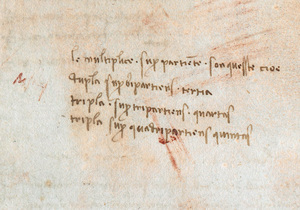 le multiplice · sup partiēte · son queste cioe
dupla sup bipartiens · tertia
tripla · sup tripartiens · quartas
tripla sup quadripartiens quintas